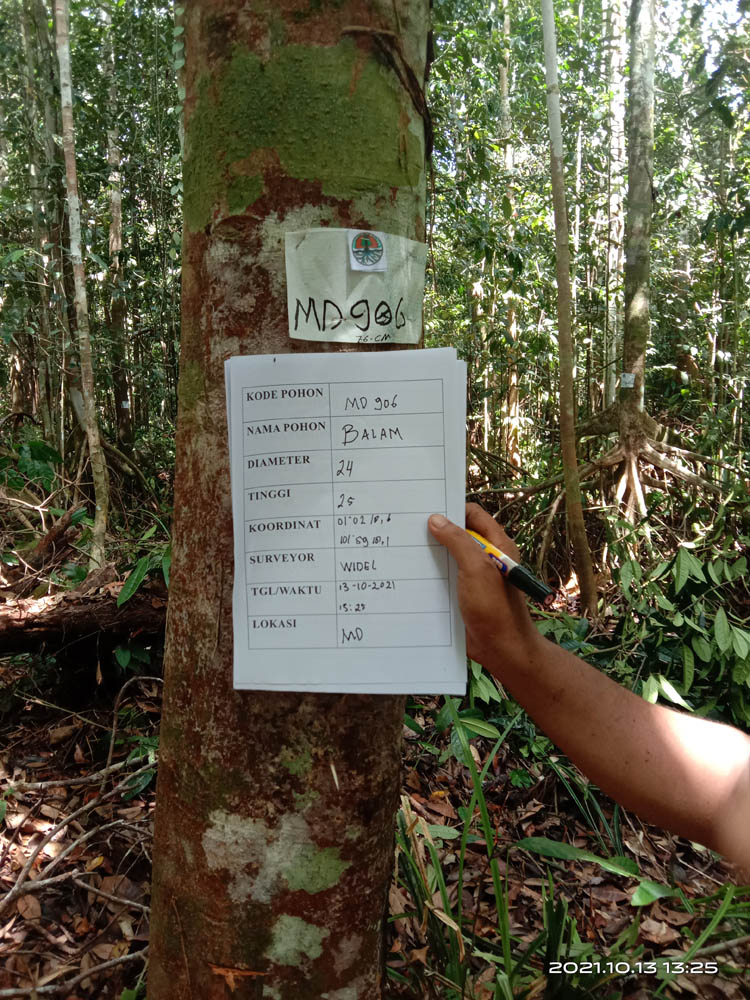 MD 906
76-CM
KODE POHON MD 906
NAMA POHON BALAM
DIAMETER 24
TINGGI 25
KOORDINAT 01°02'18,6
101°59'18,1
SURVEYOR WIDEL
TGL/WAKTU 13-10-2021
13:25
LOKASI MD
2021.10.13 13:25